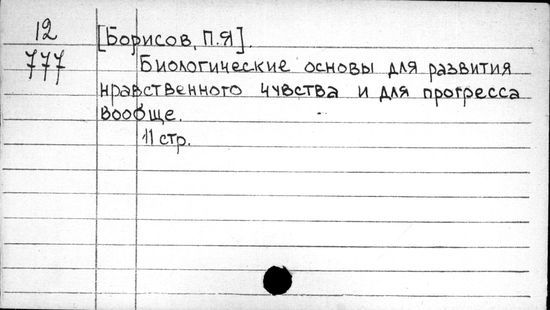 12
777
[Борисов, П.Я].
Биологические основы для развития
нравственного чувства и для прогресса
вообще.
11 стр.